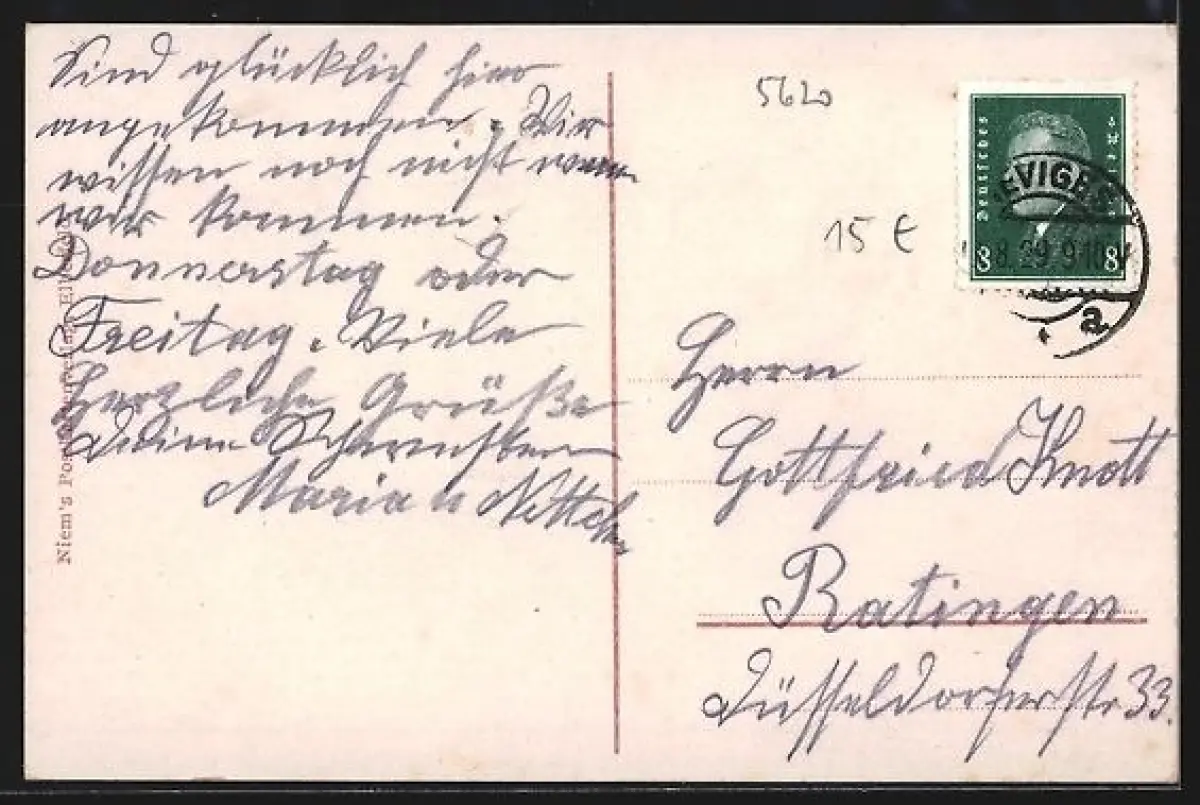 Sind glücklich hier
angekommen. Wir
wissen noch nicht wann
wir kommen.
Donnerstag oder
Freitag. Viele
herzliche Grüße
Deine Schwestern
Maria u
Niem's
5620
15 €
Deutsches
8 8
EVIGES
8.29. 9-10 V
a
Herrn
Gottfried Knott
Ratingen
Düsseldorferstr 33.